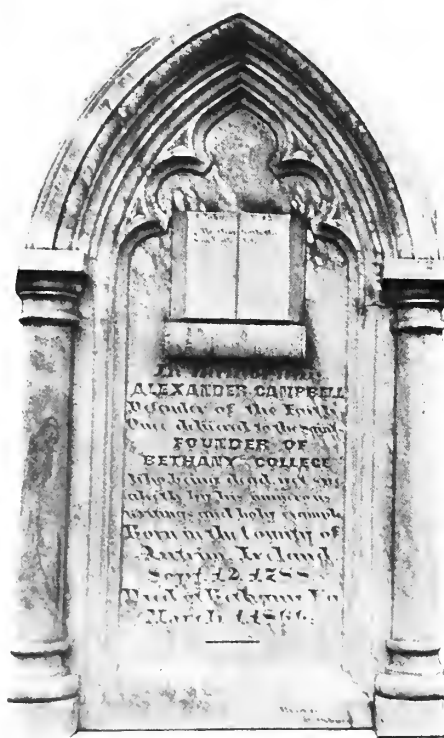 In Memoriam
ALEXANDER CAMPBELL
Defender of the Faith
Once delivered to the Saints
FOUNDER OF
BETHANY COLLEGE
Who being dead yet speaketh
by his numerous
writings and holy example
Born in the County of
Antrim Ireland
Sept 12 1788
Died at Bethany Va
March 4 1866.